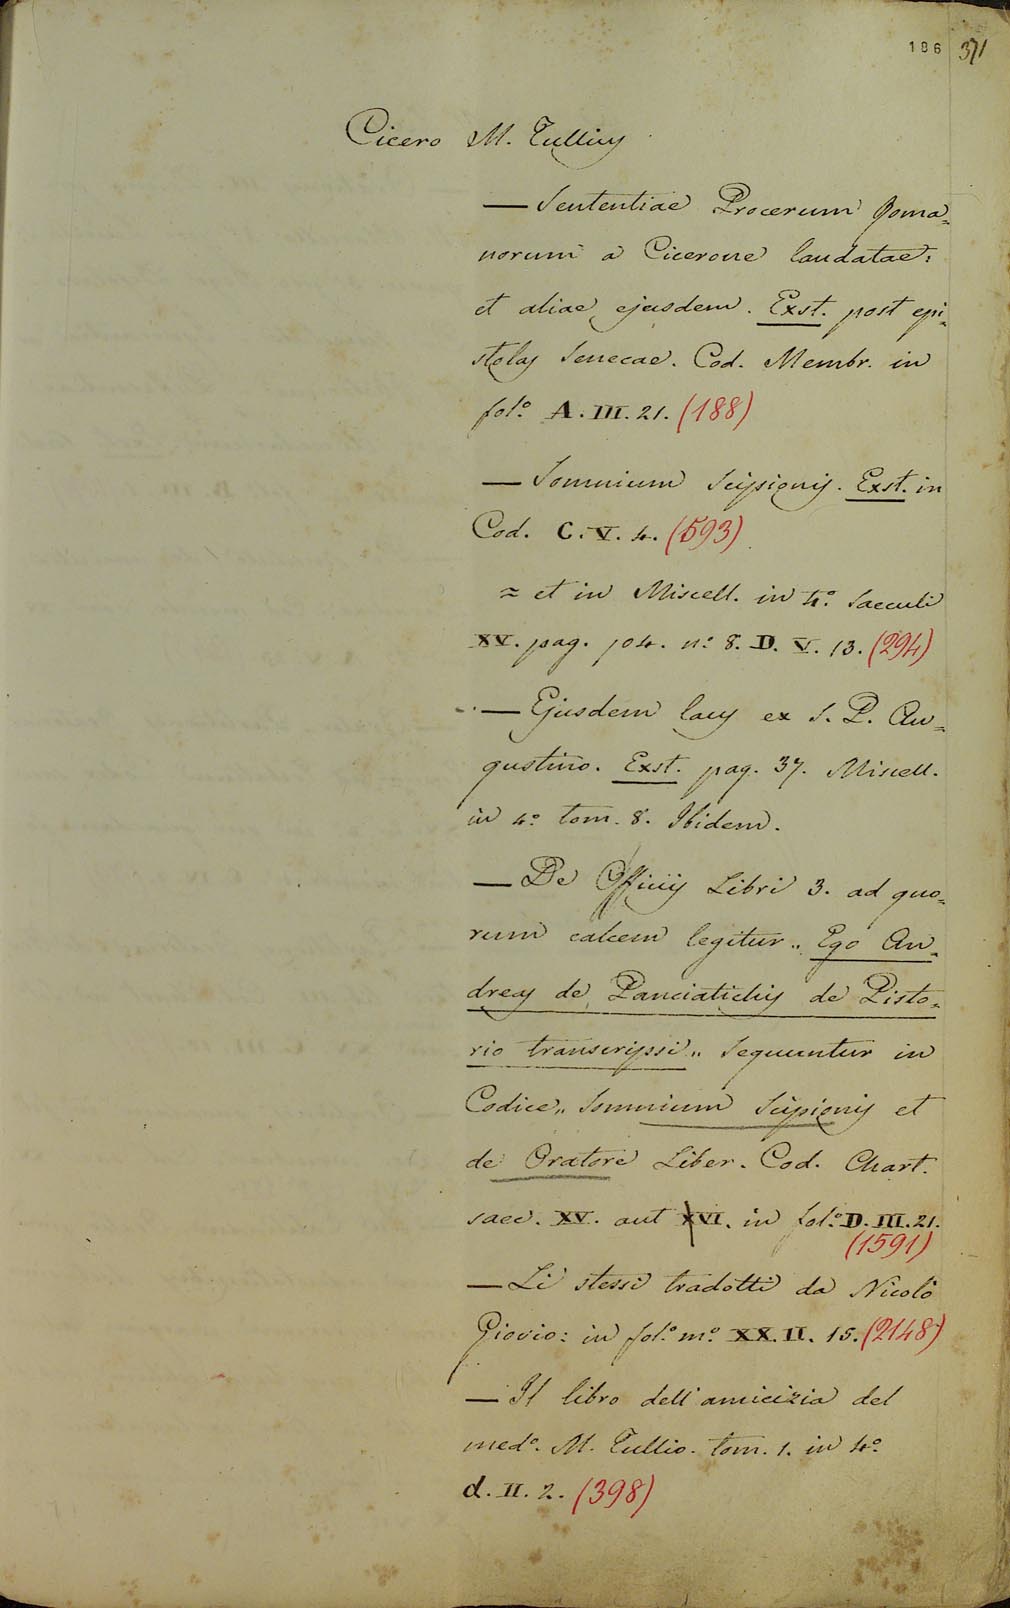 186 371
Cicero M. Tullius
— Sententiae Procerum Roma=
norum a Cicerone laudatae:
et aliae ejusdem. Exst. post epi=
stolas Senecae. Cod. Membr. in
fol.º A. III. 21. (188)
— Somnium Scipionis. Exst. in
Cod. C. V. 4. (593)
= et in Miscell. in 4.º Saeculi
XV. pag. 104. n.º 8. D. V. 13. (294)
— Ejusdem laus ex S. P. Au=
gustino. Exst. pag. 37. Miscell.
in 4.º tom. 8. Ibidem.
— De Officiis Libri 3. ad quo=
rum calcem legitur „ Ego An=
dreas de Panciatichis de Pisto=
rio transcripsi „ Sequuntur in
Codice „ Somnium Scipionis et
de Oratore Liber. Cod. Chart.
saec. XV. aut XVI. in fol.º D. III. 21.
(1591)
— Li stessi tradotti da Nicolò
Giovio: in fol.º m.º XX. II. 15. (2148)
— Il libro dell'amicizia del
med.º M. Tullio. tom. 1. in 4.º
d. II. 2. (398)